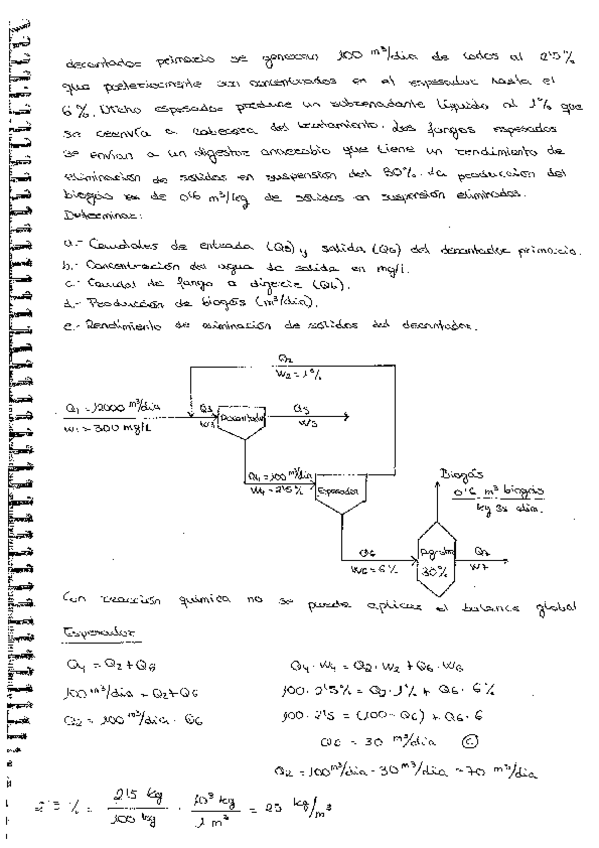 decantador primario se generan 100 m³/día de lodos al 2'5%
que posteriormente son concentrados en el espesador hasta el
6%. Dicho espesador produce un sobrenadante líquido al 1% que
se reenvía a cabecera del tratamiento. Los fangos espesados
se envían a un digestor anaerobio que tiene un rendimiento de
eliminación de sólidos en suspensión del 30%. La producción del
biogás es de 0'6 m³/kg de sólidos en suspensión eliminados.
Determinar:
a.- Caudales de entrada (Q3) y salida (Q5) del decantador primario.
b.- Concentración del agua de salida en mg/l.
c.- Caudal de fango a digerir (Q6).
d.- Producción de biogás (m³/día).
e.- Rendimiento de eliminación de sólidos del decantador.
Q2
W2 = 1%
Q1 = 12000 m³/día
W1 = 300 mg/L
Q3
W3
Decantador
Q5
W5
Q4 = 100 m³/día
W4 = 2'5%
Espesador
Biogás
0'6 m³ biogás
kg ss elim.
Q6
W6 = 6%
Digestor
30%
Q7
W7
Con reacción química no se puede aplicar el balance global
Espesador
Q4 = Q2 + Q6
Q4 · W4 = Q2 · W2 + Q6 · W6
100 m³/día = Q2 + Q6
100 · 2'5% = Q2 · 1% + Q6 · 6%
Q2 = 100 m³/día - Q6
100 · 2'5 = (100 - Q6) + Q6 · 6
Q6 = 30 m³/día (c)
Q2 = 100 m³/día - 30 m³/día = 70 m³/día
2'5 % = 2'5 kg / 100 kg · 10³ kg / 1 m³ = 25 kg/m³